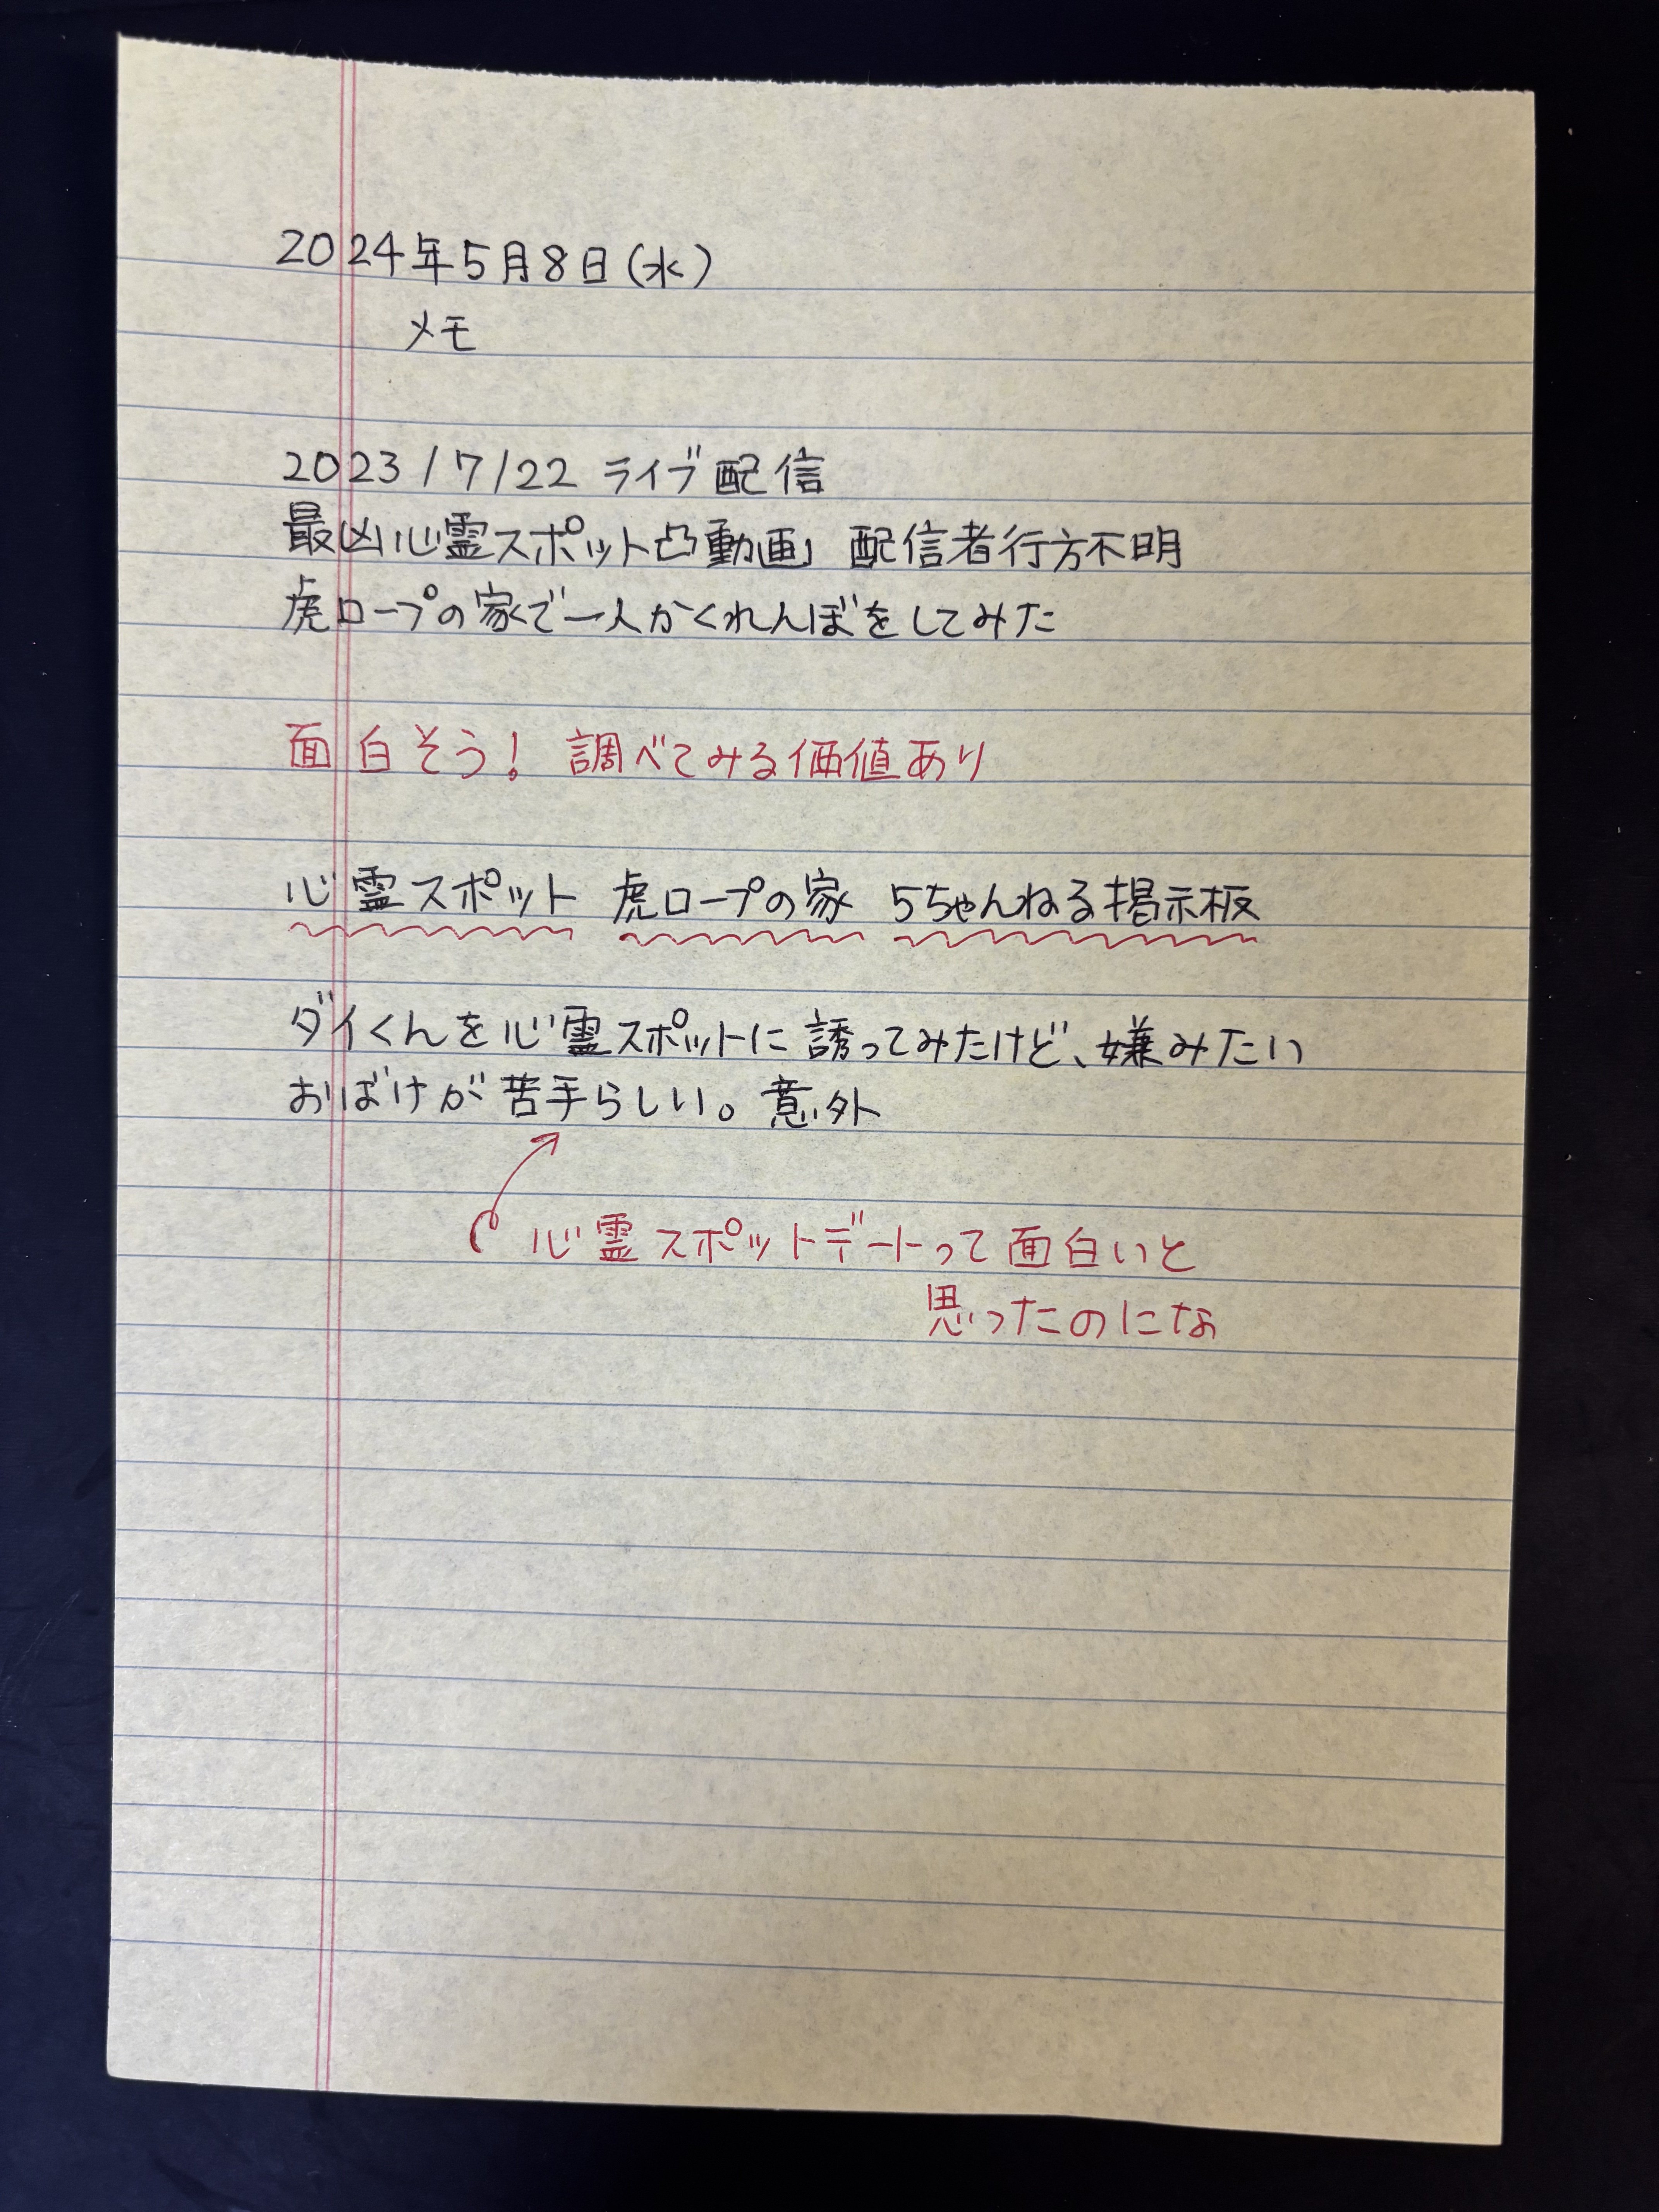 2024年5月8日(水)
メモ
2023/7/22 ライブ配信
最凶心霊スポット凸動画」 配信者行方不明
虎ロープの家で一人かくれんぼをしてみた
面白そう! 調べてみる価値あり
心霊スポット 虎ロープの家 5ちゃんねる掲示板
ダイくんを心霊スポットに誘ってみたけど、嫌みたい
おばけが苦手らしい。意外
心霊スポットデートって面白いと
思ったのにな